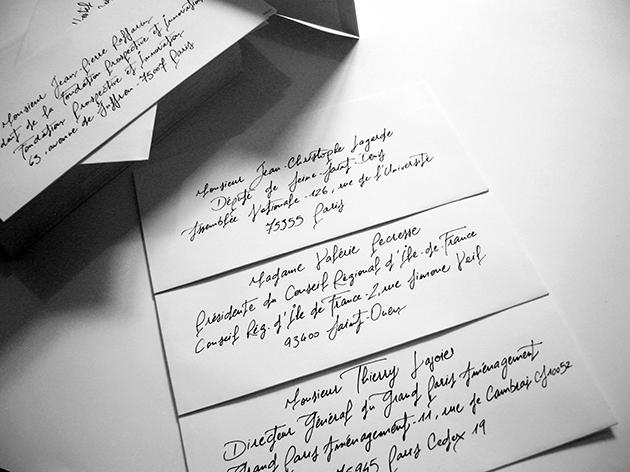 Monsieur Jean-Pierre Raffarin
de la Fondation Prospective et Innovation
Fondation Prospective et Innovation
63, avenue de Suffren - 75007 Paris
Monsieur Jean-Christophe Lagarde
Député de Seine-Saint-Denis
Assemblée Nationale - 126, rue de l'Université
75355 Paris
Madame Valérie Pecresse
Présidente du Conseil Régional d'Île-de-France
Conseil Rég. d'Île de France - 2, rue Simone Veil
93400 Saint-Ouen
Monsieur Thierry Lajoie
Directeur Général du Grand Paris Aménagement
Grand Paris Aménagement - 11, rue de Cambrai CS10052
75945 Paris Cedex 19